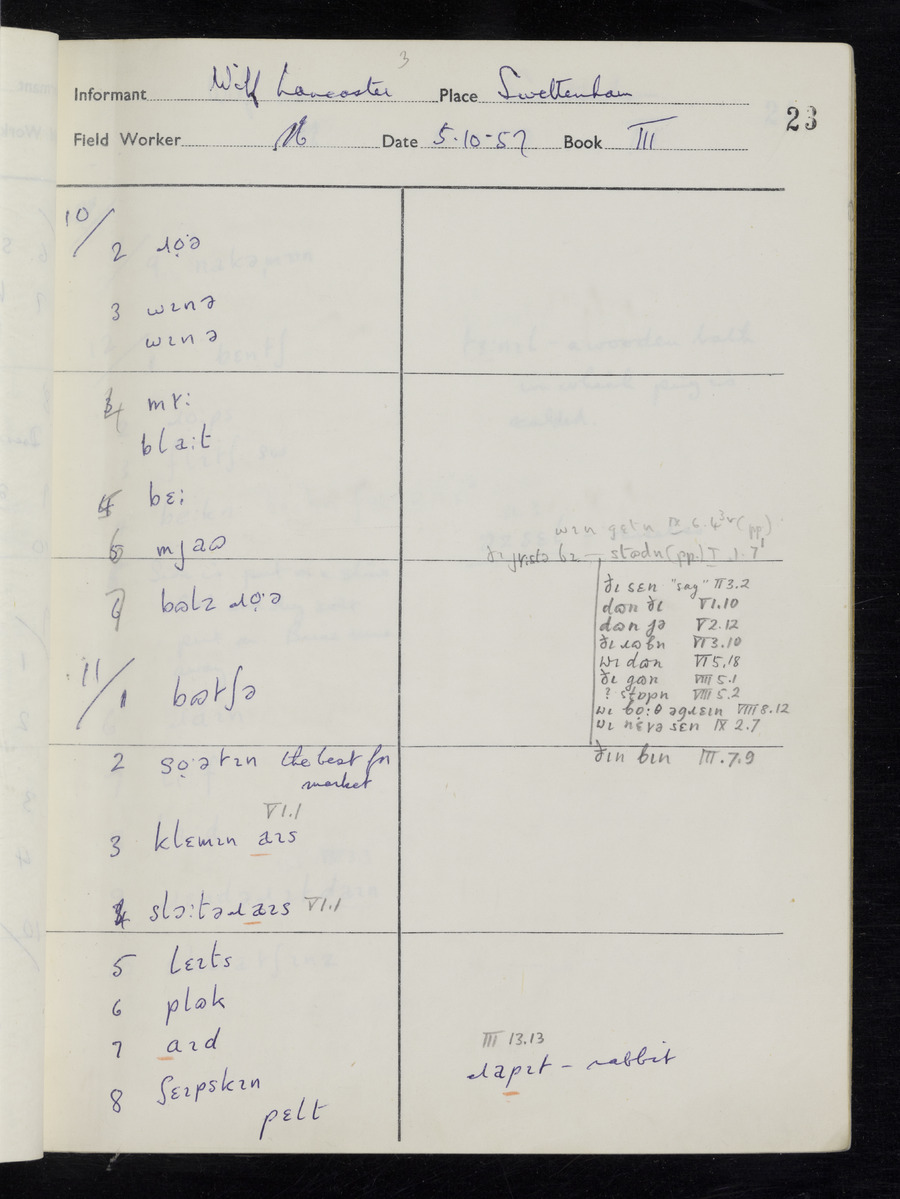 3
Informant Wilf Lancaster Place Swettenham
23
Field Worker Date 5.10-57 Book III
10/
2 ɹọ·ə
3 wɪnə
wɪnə
4 mɤ:
blaːt
5 bɛː
6 mjaɷ
7 bɷlɪ ɹọ·ə
11/
1 bɷtʃə
2 sọ·ətɪn the best for
market
VI.1
3 klɛmɪn aɪs
4 slɔːtəɹ aɪs VI.1
5 lɛɪts
6 plɷk
7 aɪd
8 ʃɛɪpskɪn
pɛlt
wɪn getn IX 6.4³ᵛ (pp)
stɷdn (pp.) I.1.7¹
ðɪ sɛn "say" II 3.2
dɷn ðɪ VI.10
dɷn jə V 2.12
ðɪ ɹɷbn VI 3.10
wɪ dɷn VI 5.18
ðɪ gɷn VIII 5.1
? stɒpn VIII 5.2
wɪ bọ:θ əgɹɛɪn VIII 8.12
wɪ nɛvə sɛn IX 2.7
ðɪn bɪn III.7.9
III 13.13
ɹapɪt - rabbit